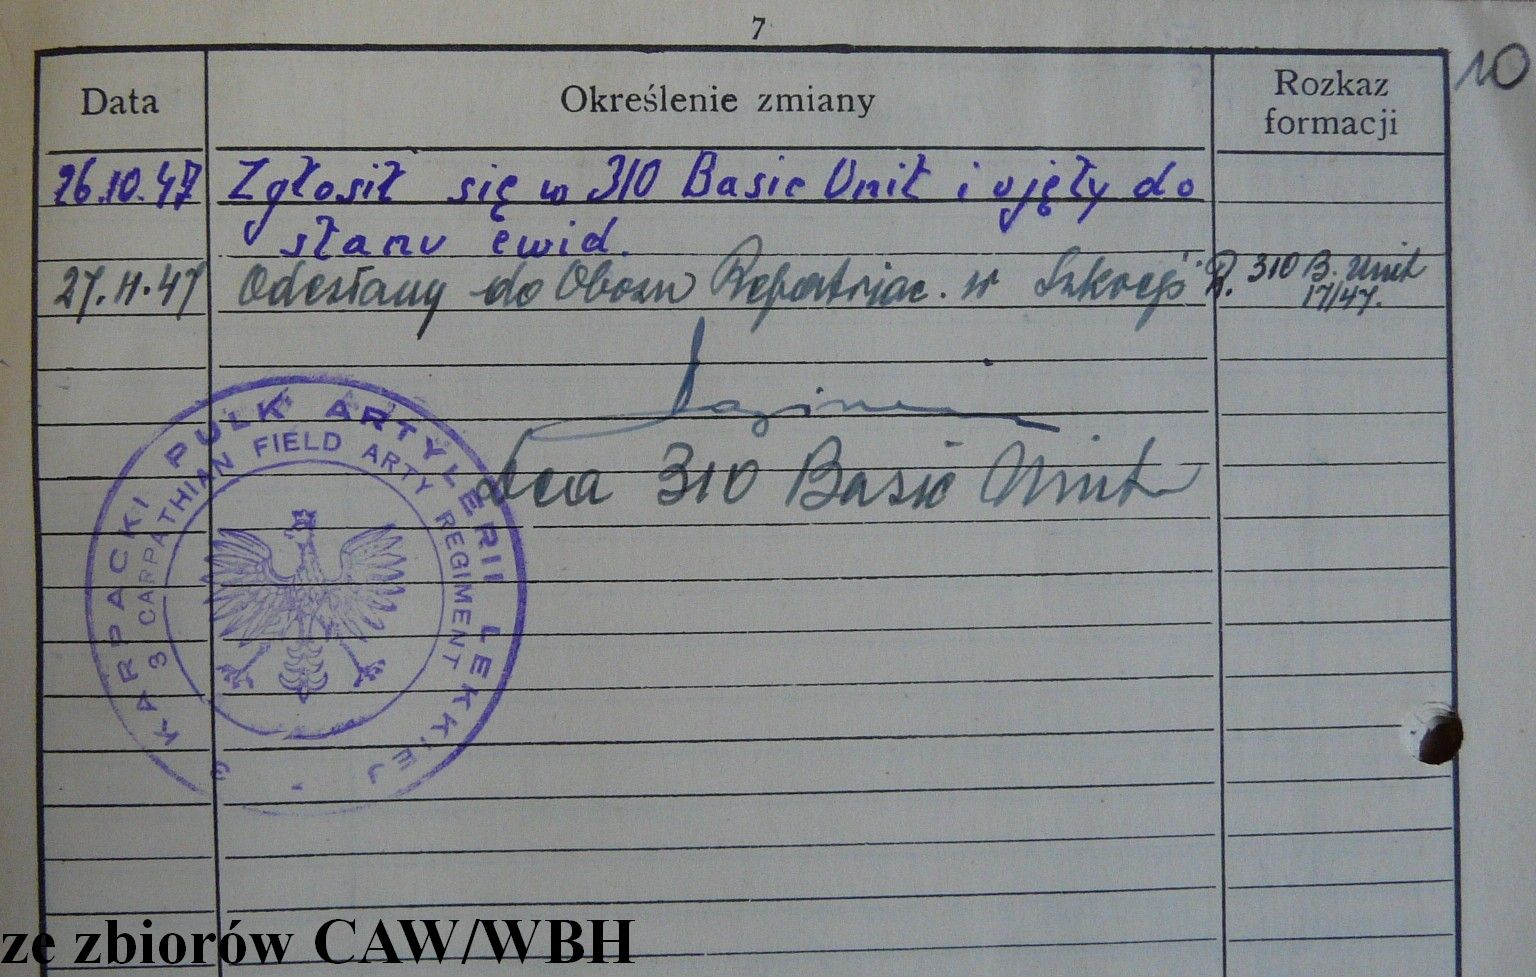 7
10
Data Określenie zmiany Rozkaz formacji
26.10.47 Zgłosił się w 310 Basic Unit i ujęty do
stanu ewid.
27.11.47 Odesłany do Obozu Repatrjac. w Szkocji R. 310 B. Unit
17/47.
Dca 310 Basic Unit
3 KARPACKI PUŁK ARTYLERII LEKKIEJ
3 CARPATHIAN FIELD ARTY REGIMENT
ze zbiorów CAW/WBH